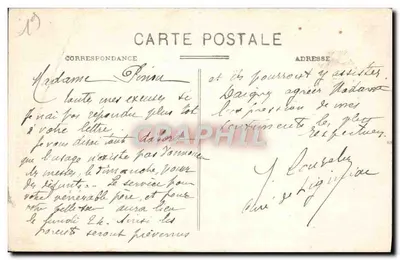 19
CARTE POSTALE
CORRESPONDANCE
ADRESSE
Madame
toute mes excuses si
je n'ai pas répondu plus tôt
à votre lettre.
je vous dirai tout
que l'usage n'existe pas d'annoncer
les messes, le dimanche, pour
des défunts. Le service pour
votre vénérable père, et pour
votre belle aura lieu
le lundi 24. Ainsi les
parents seront prévenus
et ils pourront y assister.
Daignez agréer Madame
l'expression de mes
sentiments les plus
respectueux
J.
Curé de
CARAPHIL